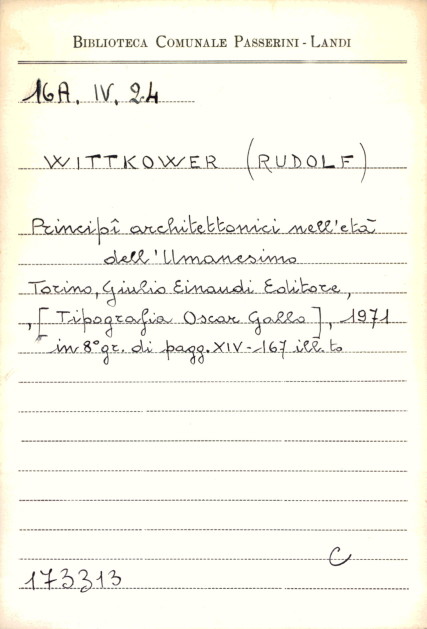 BIBLIOTECA COMUNALE PASSERINI - LANDI
16A. IV. 24
WITTKOWER (RUDOLF)
Principî architettonici nell'età
dell'Umanesimo
Torino, Giulio Einaudi Editore,
,[Tipografia Oscar Gallo], 1971
in 8° gr. di pagg. XIV-167 ill. to
C
173313